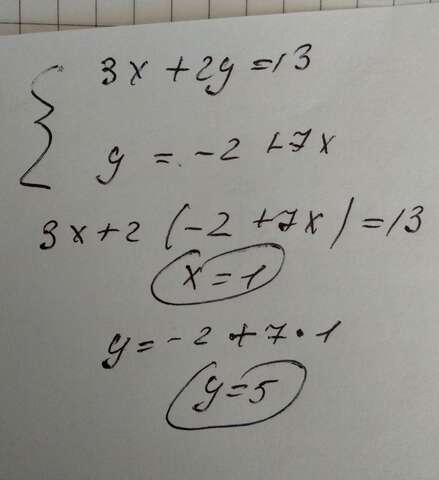 3x + 2y = 13
y = -2 + 7x
3x + 2 (-2 + 7x) = 13
x = 1
y = -2 + 7 · 1
y = 5